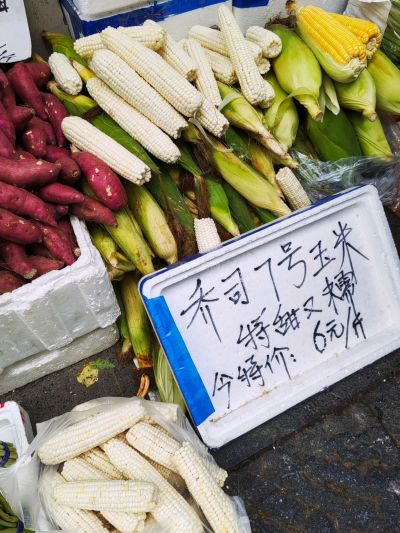 乔司7号玉米
特甜又糯
今特价：6元/斤